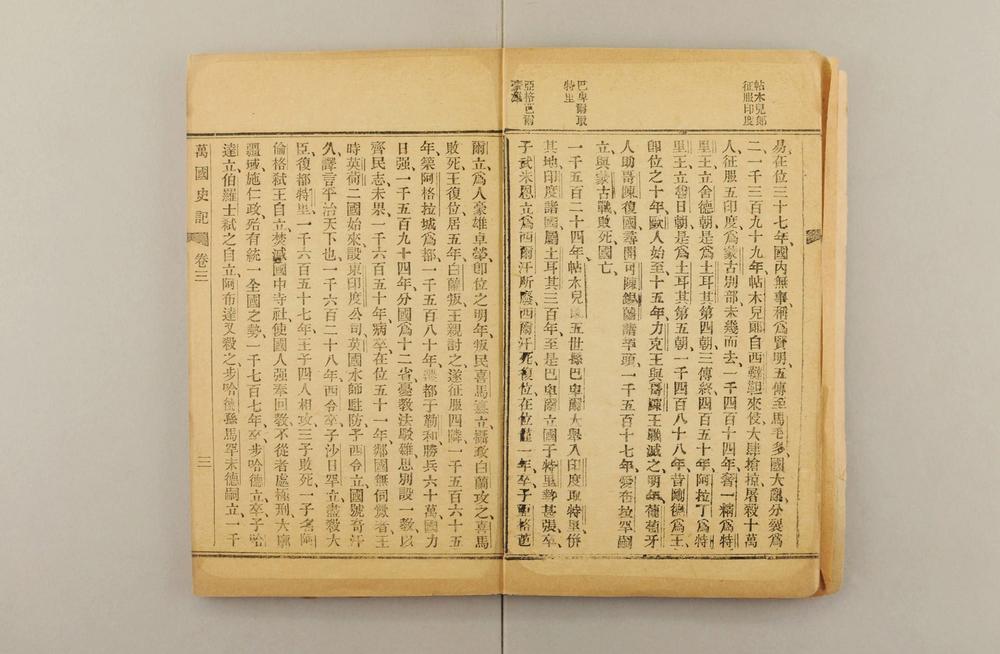 帖木兒郎
征服印度
巴卑爾取
特里
亞格邑爾
易在位三十七年國内無事稱爲賢明五傳至馬毛多國大亂分裂爲
二一千三百九十九年帖木兒郎自西韃靼來侵大肆搶掠屠殺十萬
人征服五印度爲蒙古別部未幾而去一千四百十四年爲特
里王立舍德朝是爲土耳其第四朝三傳終四百五十年阿拉丁爲特
里王立日朝是爲土耳其第五朝一千四百八十八年昔剛德爲王
卽位之十年歐人始至十五年力克王與戰滅之明年葡萄牙
人助哥陳復國尋開可陳諸埠頭一千五百十七年愛布拉罕嗣
立與蒙古戰敗死國亡
一千五百二十四年帖木兒五世孫巴卑爾大舉入印度取特里併
其地印度諸國屬土耳其三百年至是巴卑爾立國于特里勢甚張卒
子武米恩立爲西爾汗所廢西爾汗死復位在位僅一年卒子亞格邑
爾立爲人豪雄卓犖卽位之明年叛民喜馬立攝政白蘭攻之喜馬
敗死王復位居五年白蘭叛王親討之遂征服四隣一千五百六十五
年築阿格拉城爲都一千五百八十年都于勒和勝兵六十萬國力
日强一千五百九十四年分國爲十二省憂教法駁雜思別設一教以
齊民志未果一千六百五十年病卒在位五十一年鄰國無伺釁者王
時英荷二國始來設東印度公司英國水師駐防子西令立國號奇汗
久譯言平治天下也一千六百二十八年西令卒子沙日罕立盡殺大
臣復都特里一千六百五十七年王子四人相攻三子敗死一子名阿
倫格弑王自立焚滅國中寺社使國人强奉回教不從者處極刑大廓
疆域施仁政殆有統一全國之勢一千七百七年卒步哈德立卒子哈
達立伯羅士弑之自立阿布達又殺之步哈德孫馬罕末德嗣立一千
萬國史記
卷三
三